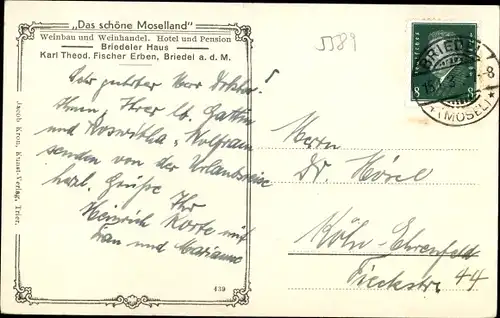 „Das schöne Moselland"
Weinbau und Weinhandel. Hotel und Pension
Briedeler Haus
Karl Theod. Fischer Erben, Briedel a. d. M.
5589
8 8
BRIEDEL
(MOSEL)
Sehr geehrter Herr Doktor!
Ihnen, Ihrer lb. Gattin
und Roswitha, Wolfram
senden von der Urlaubsreise
herzl. Grüße Ihr
Heinrich Korte mit
Frau und Marianne
Herrn
Dr. Hösel
Köln-Ehrenfeld
44
Jacob Kron, Kunst-Verlag, Trier.
439